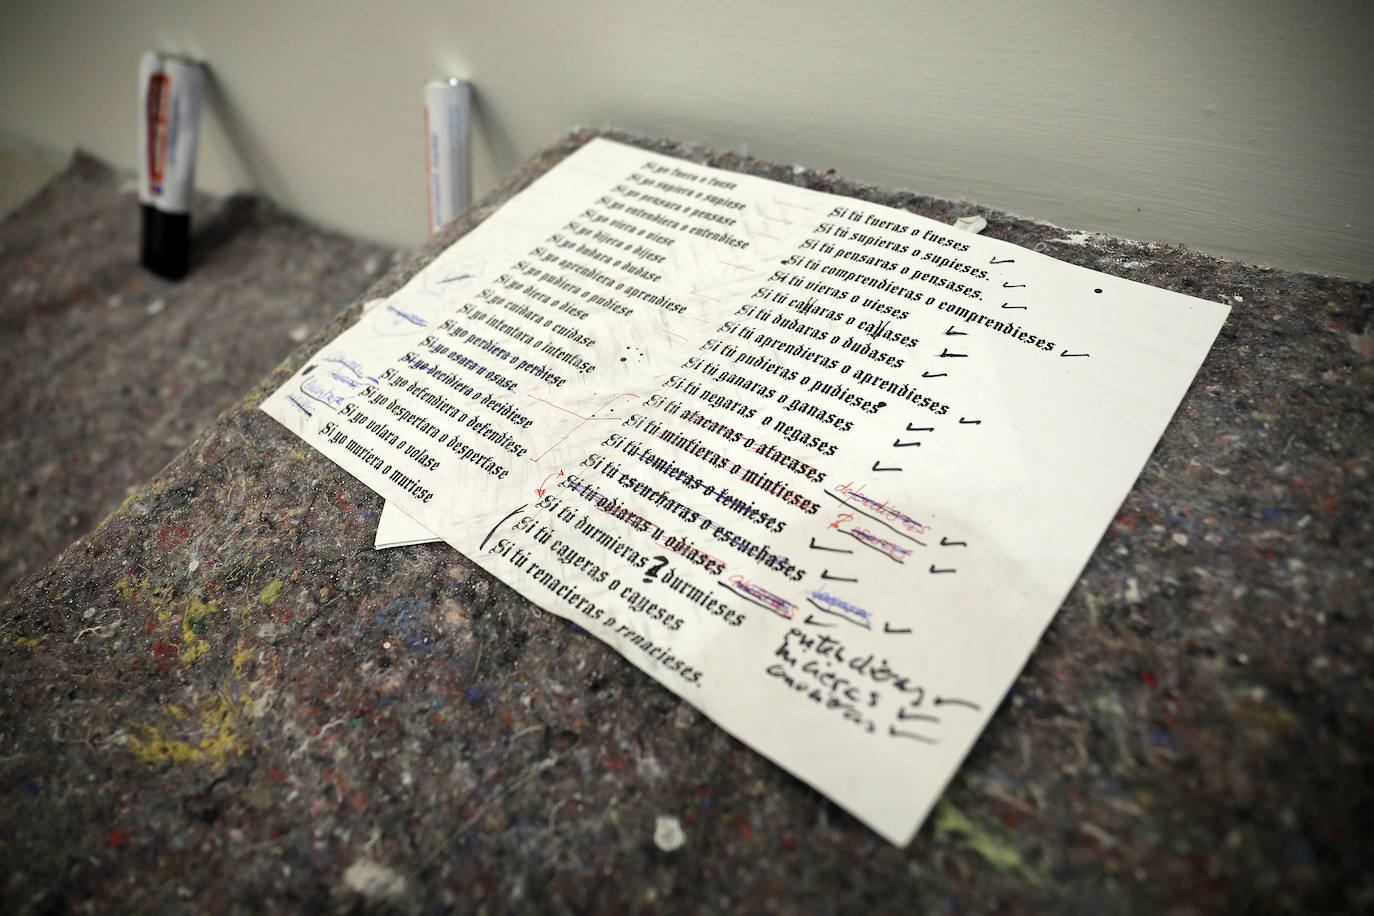 Si yo fuera o fuese
Si yo supiera o supiese
Si yo pensara o pensase
Si yo entendiera o entendiese
Si yo viera o viese
Si yo dijera o dijese
Si yo dudara o dudase
Si yo aprendiera o aprendiese
Si yo pudiera o pudiese
Si yo diera o diese
Si yo cuidara o cuidase
Si yo intentara o intentase
Si yo perdiera o perdiese
Si yo osara u osase
Si yo decidiera o decidiese
Si yo defendiera o defendiese
Si yo despertara o despertase
Si yo volara o volase
Si yo muriera o muriese
Si tú fueras o fueses
Si tú supieras o supieses.
Si tú pensaras o pensases.
Si tú comprendieras o comprendieses
Si tú vieras o vieses
Si tú callaras o callases
Si tú dudaras o dudases
Si tú aprendieras o aprendieses
Si tú pudieras o pudieses
Si tú ganaras o ganases
Si tú negaras o negases
Si tú atacaras o atacases
Si tú mintieras o mintieses
Si tú temieras o temieses
Si tú escucharas o escuchases
Si tú odiaras u odiases
Si tú durmieras ? durmieses
Si tú cayeras o cayeses
Si tú renacieras o renacieses.
entendieras
hicieras